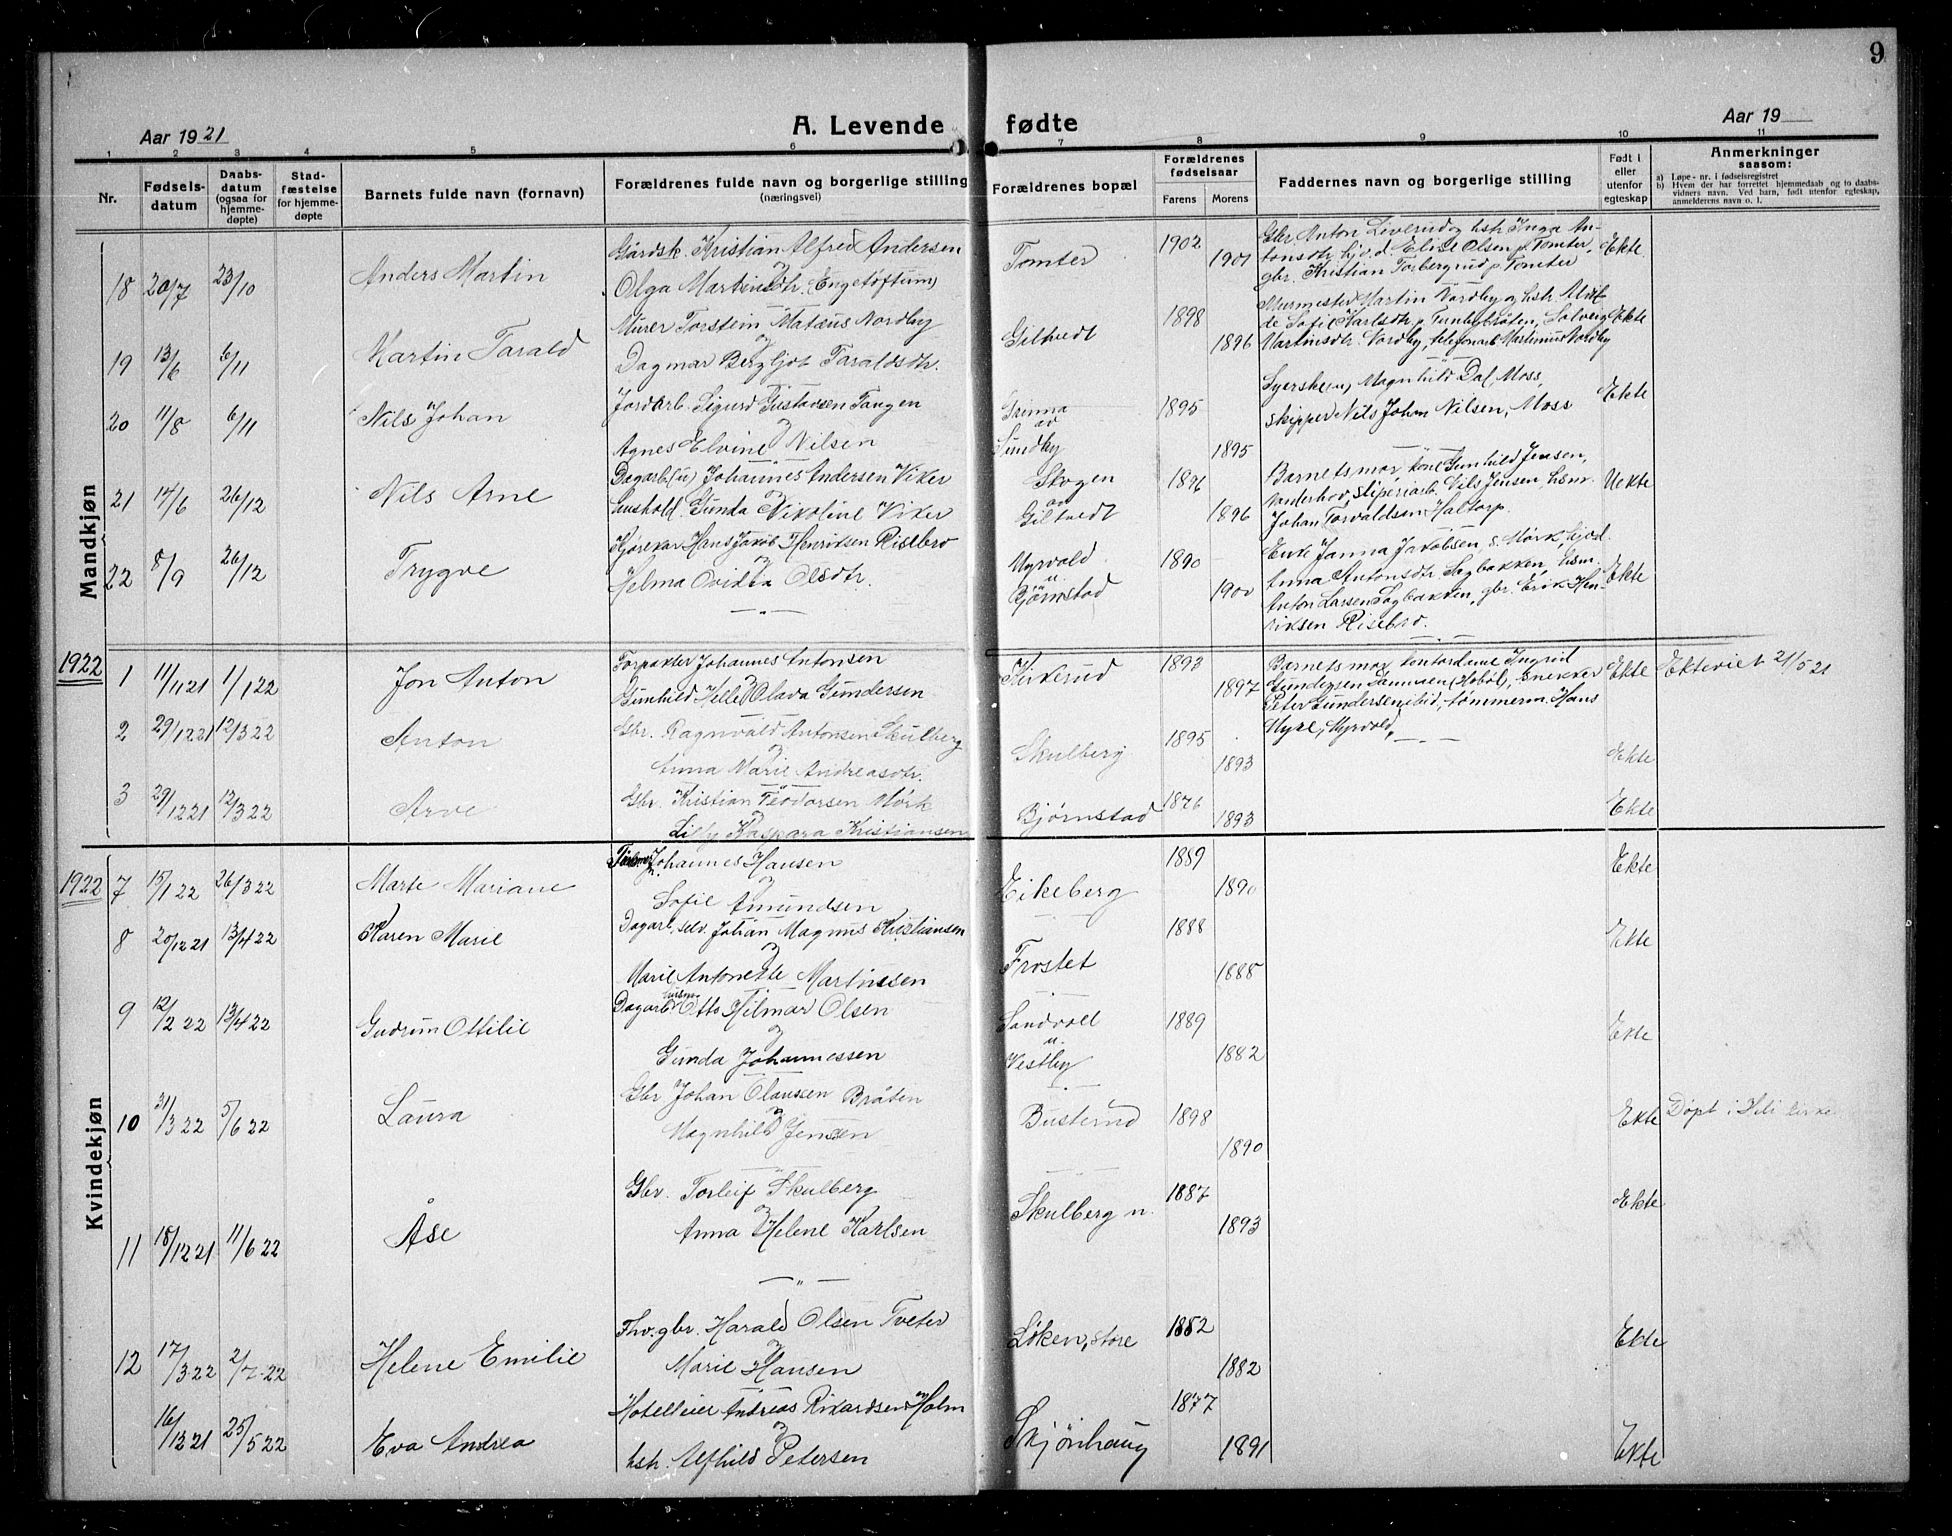 9
Aar 1921
A. Levende fødte
Aar 19
1 2 3 4 5 6 7 8 9 10 11
Nr.
Fødsels-datum
Daabs-datum (ogsaa for hjemme-døpte)
Stad-fæstelse for hjemme-døpte
Barnets fulde navn (fornavn)
Forældrenes fulde navn og borgerlige stilling (næringsvei)
Forældrenes bopæl
Forældrenes fødselsaar
Farens Morens
Faddernes navn og borgerlige stilling
Født i eller utenfor egteskap
Anmerkninger saasom:
a) Løpe-nr. i fødselsregistret
b) Hvem der har forrettet hjemmedaab og to daabs-vidners navn. Ved barn, født utenfor egteskap, anmelderens navn o. l.
Mandkjøn
18 20/7 23/10 Anders Martin
Gårdsk. Kristian Alfred Andersen
og
Olga Martinsdtr. (Engetoftum)
Tomter 1902 1901
Gbr Anton Liverud og hstr Inga An-
tonsdtr hj.v.d. Elise Olsen p. Tomter
gbr. Kristian Torbergrud p. Tomter
Ekte
19 13/6 6/11 Martin Tarald
Murer Torstein Matæus Nordby
og
Dagmar Bergljot Taraldsdtr.
Giltvedt 1898 1896
Murmester Martin Nordby og hstr.
Sofie Karlsdtr. p. Solveig
Martinsdtr Nordby, telefonarb Martinius Nordby
Ekte
20 11/8 6/11 Nils Johan
Jordarb. Sigurd Gustavsen Tangen
og
Agnes Elvine Nilsen
Grinna
av
Sundby
1895 1895
Syersken, Magnhild Dal, Moss,
skipper Nils Johan Nilsen, Moss
Ekte
21 17/6 26/12 Nils Arne
Dagarb (u) Johannes Andersen Viker
og
hushold. Gunda Nikoline Viker
Skogen
av
Giltvedt
1896 1896
Barnets mor, kone Gunhild Jensen,
støperiarb. Nils Jensen, hsm
Johan Torvaldsen Haltorp.
Uekte
22 8/9 26/12 Trygve
Kjørekar Hans Jakob Henriksen Risebro
og
Helma Ovidia Olsdtr.
Myrvold
u.
Bjørnstad
1890 1900
Enke Janna Jakobsen, s. Mørk,
Anna Antonsdtr Sagbakken, hsm
Anton Larsen Sagbakken, gbr. Erik Hen-
riksen Risebro.
Ekte
1922
1 11/11 21 1/1 22 Jon Anton
Forpakter Johannes Antonsen
og
Gunhild Helle Olava Gundersen
Kirkerud 1893 1897
Barnets mor, kontordame Ingrid
Gundersen (Hobøl), snekker
Peter Gundersen ibid, tømmerm. Hans
Myre, Myrvold,
Ekte
Ekteviet 21/5 21
2 29/12 21 12/3 22 Anton
Gbr. Ragnvald Antonsen Skulberg
og
Anna Marie Andreasdtr.
Skulberg 1895 1893 Ekte
3 29/12 21 12/3 22 Arve
Gbr. Kristian Teodorsen Mørk
Lilly Kaspara Kristiansen
Bjørnstad 1876 1893 Ekte
Kvindekjøn
1922
7 15/1 22 26/3 22 Marte Mariane
Johannes Hansen
og
Sofie Amundsen
Eikeberg 1889 1890 Ekte
8 20/12 21 13/4 22 Karen Marie
Dagarb, selv. Johan Magnus Kristiansen
og
Marie Antonette Martinsen
Frostet 1888 1888 Ekte
9 12/2 22 13/4 22 Gudrun Ottilie
Dagarb husm. Otto Hilmar Olsen
og
Gunda Johannessen
Sandvoll
u.
Vestby
1889 1882 Ekte
10 31/3 22 5/6 22 Laura
Gbr Johan Olaussen Bråten
og
Magnhild Jensen
Busterud 1898 1890 Ekte
Døpt i Hili kirke
11 18/12 21 11/6 22 Åse
Gbr. Torleif Skulberg
og
Anna Helene Karlsen
Skulberg n. 1887 1893 Ekte
12 17/3 22 2/7 22 Helene Emilie
Fhv. gbr. Harald Olsen Tveter
og
Marie Hansen
Løken, store 1882 1882 Ekte
16/12 21 25/5 22 Eva Andrea
Hotelleier Andreas Rikardsen Holm
og
hstr. Alfhild Petersen
Skjønhaug 1877 1891 Ekte